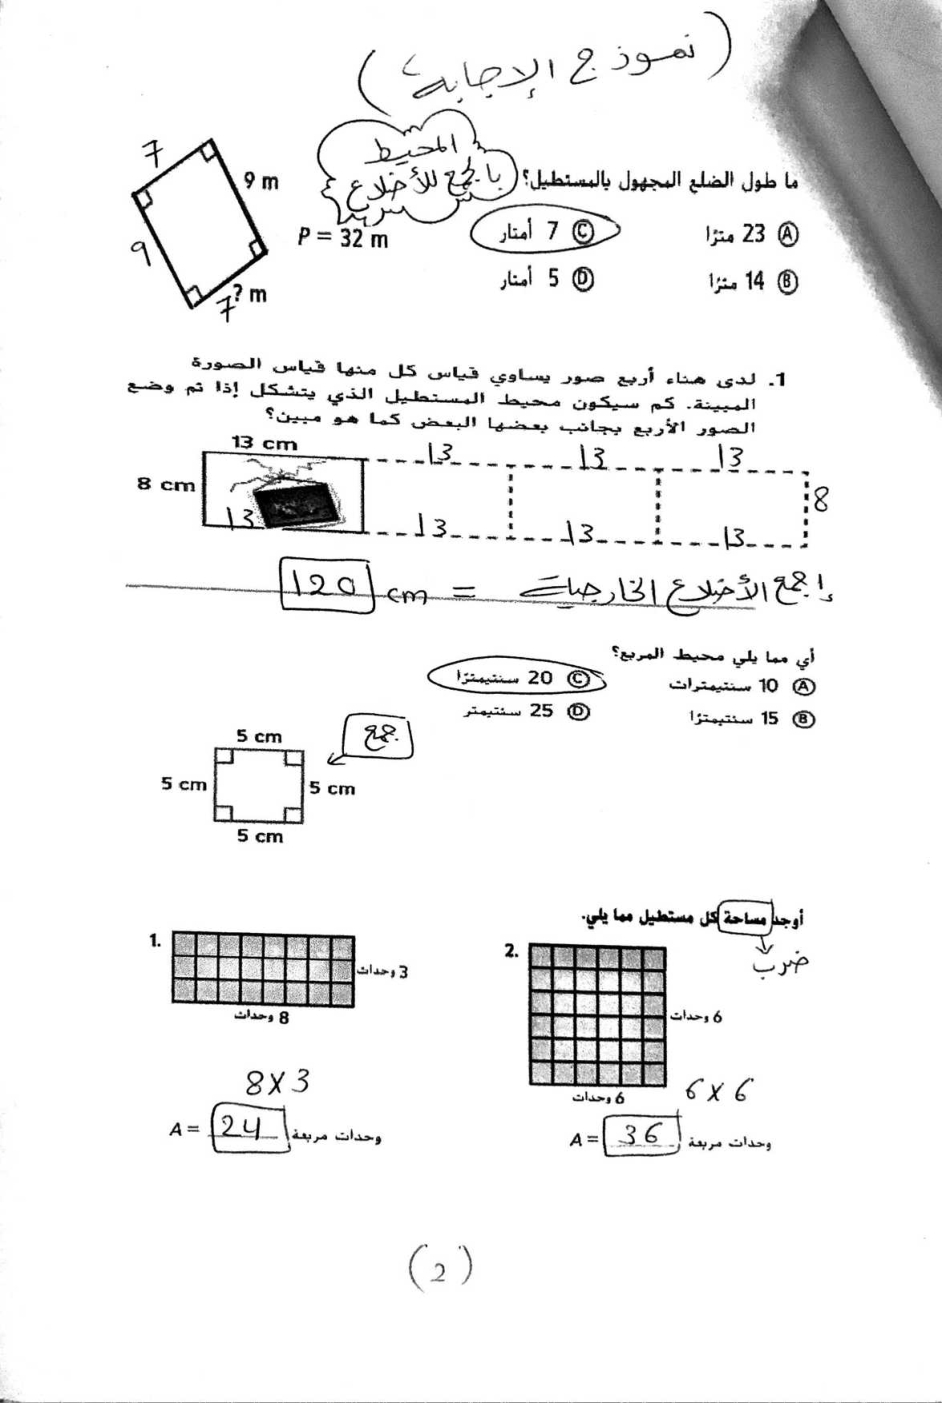 (نموذج الإجابة)
المحيط
بالجمع للأضلاع
ما طول الضلع المجهول بالمستطيل؟
7
9 m
9
? m
7
P = 32 m
Ⓐ 23 مترًا
Ⓒ 7 أمتار
Ⓑ 14 مترًا
Ⓓ 5 أمتار
1. لدى هناء أربع صور يساوي قياس كل منها قياس الصورة
المبينة. كم سيكون محيط المستطيل الذي يتشكل إذا تم وضع
الصور الأربع بجانب بعضها البعض كما هو مبين؟
13 cm 13 13 13
8 cm
8
13 13 13 13
إجمع الأضلاع الخارجية = 120 cm
أي مما يلي محيط المربع؟
Ⓐ 10 سنتيمترات
Ⓒ 20 سنتيمترًا
Ⓑ 15 سنتيمترًا
Ⓓ 25 سنتيمتر
جمع
5 cm
5 cm
5 cm
5 cm
أوجد مساحة كل مستطيل مما يلي.
ضرب
1.
3 وحدات
8 وحدات
8 x 3
A = 24 وحدات مربعة
2.
6 وحدات
6 وحدات
6 x 6
A = 36 وحدات مربعة
(2)